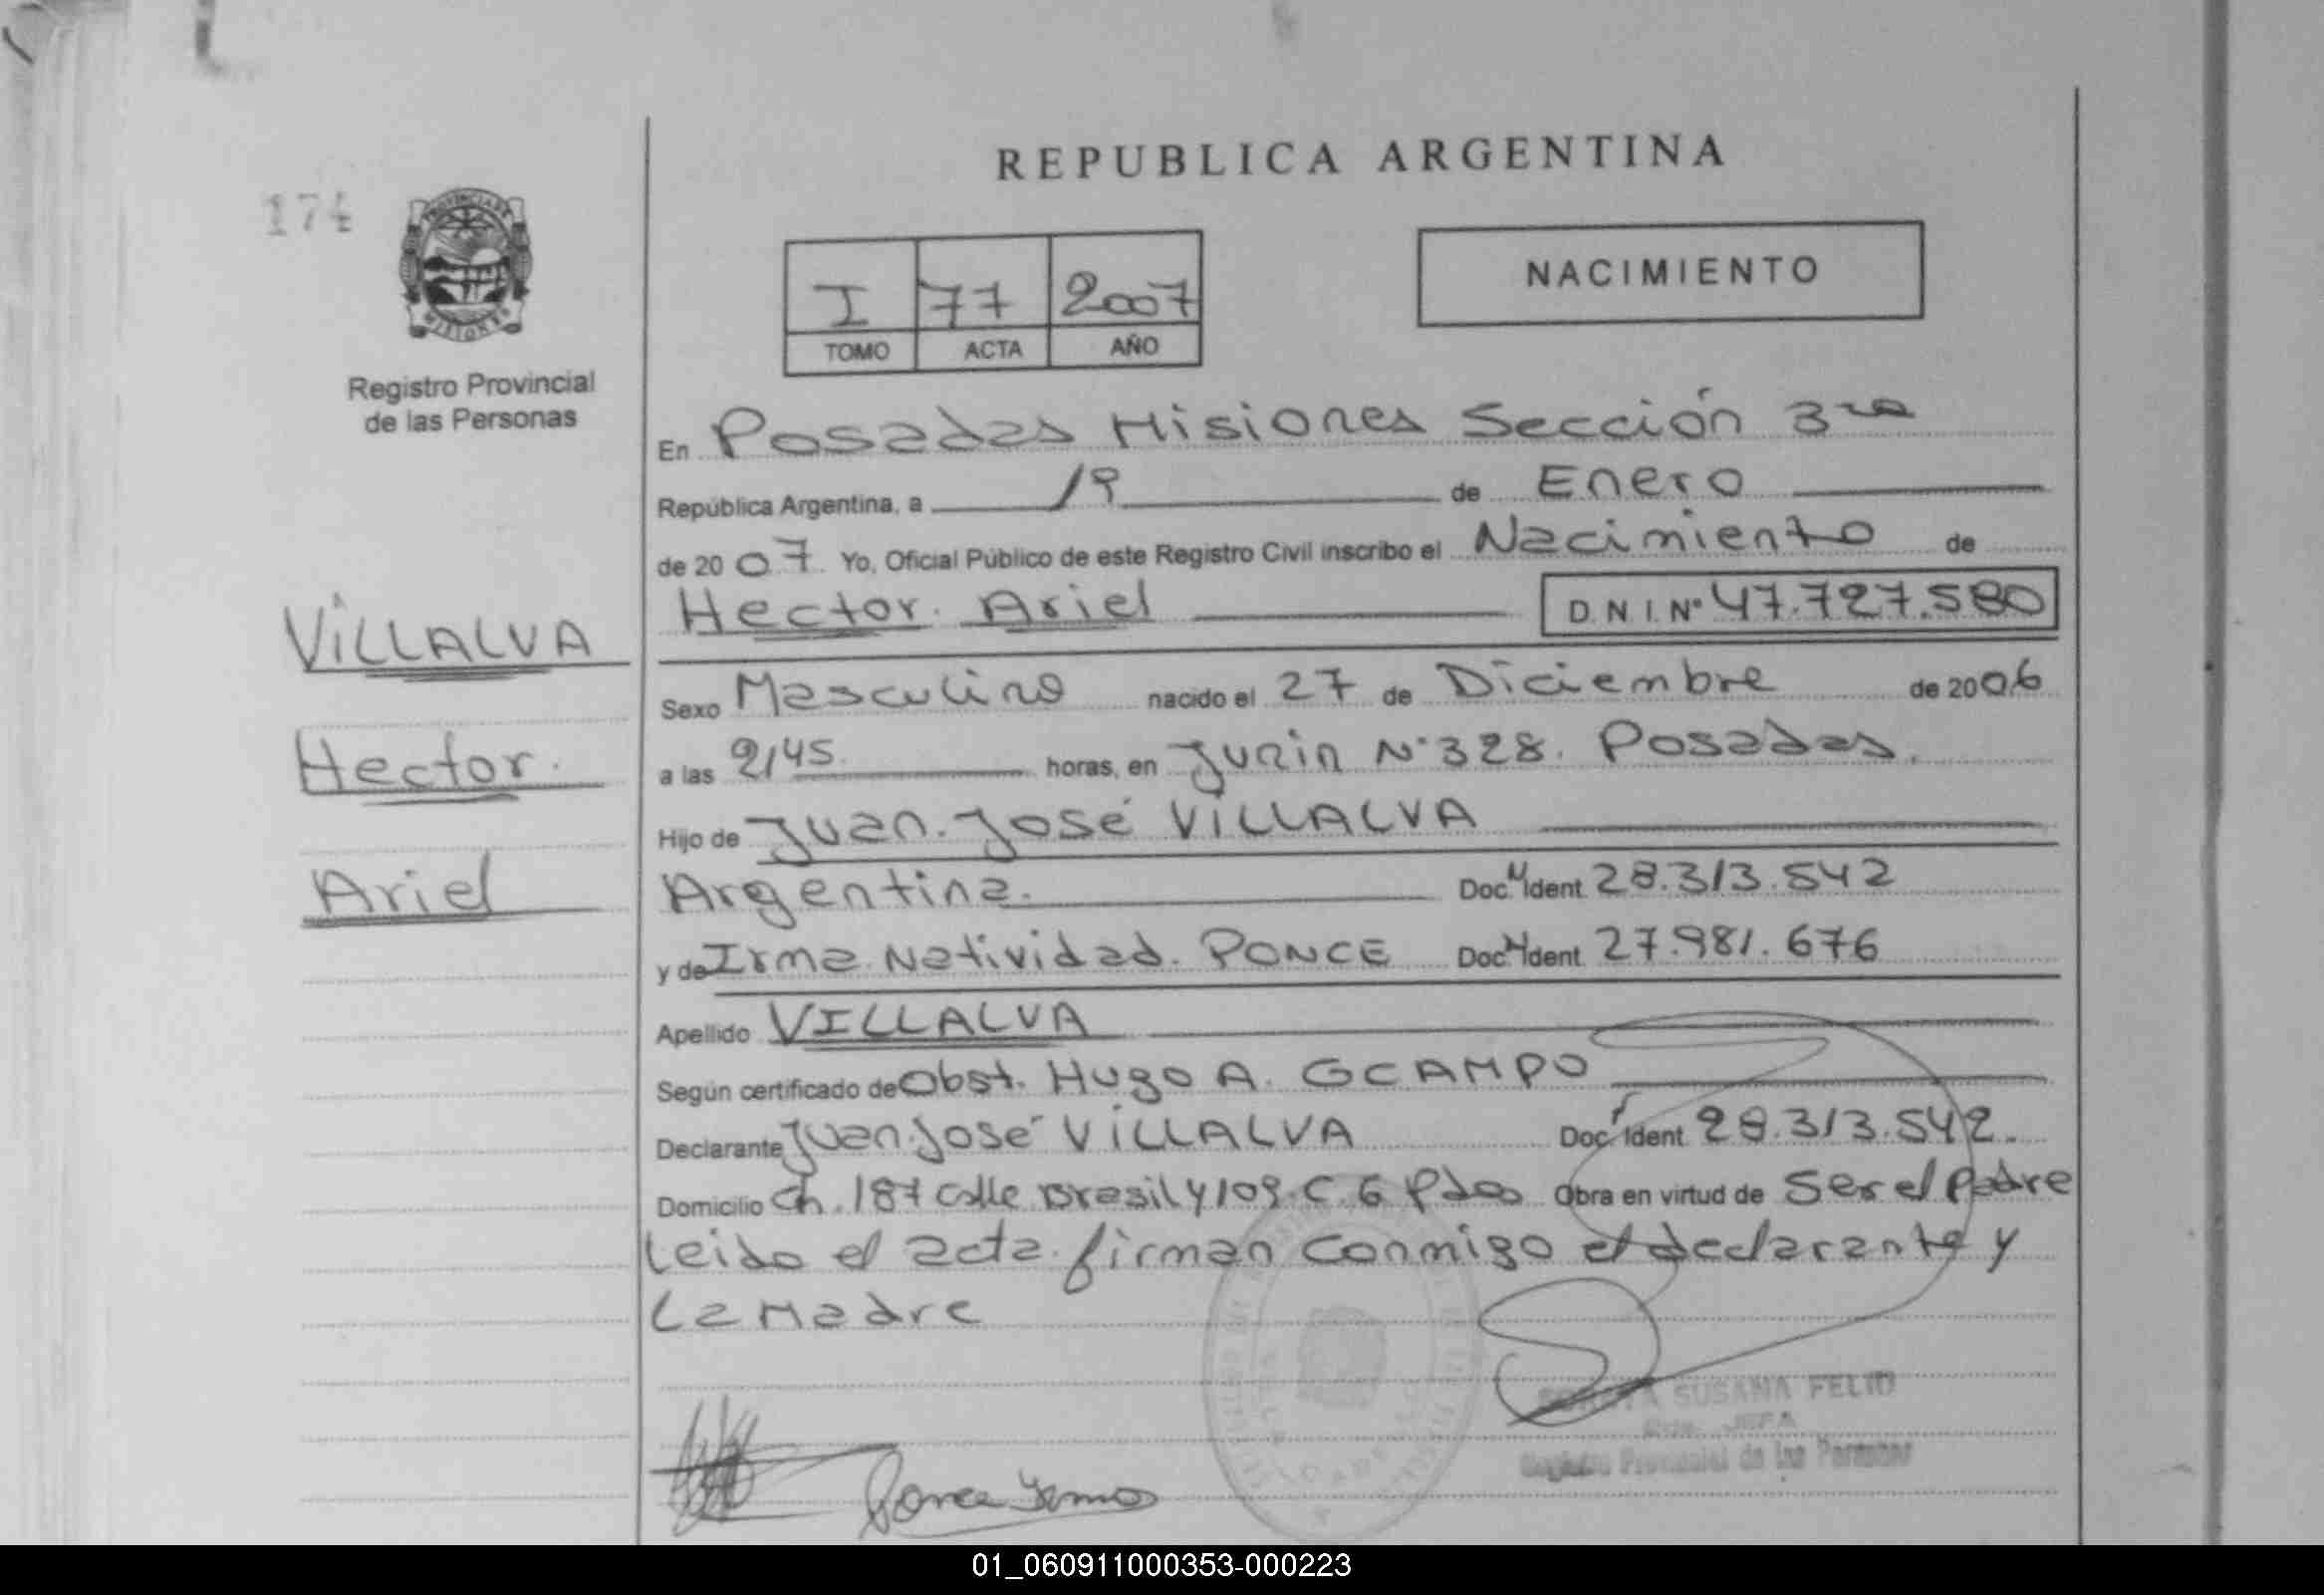 REPUBLICA ARGENTINA
174
PROVINCIA DE
MISIONES
Registro Provincial
de las Personas
I 77 2007
TOMO ACTA AÑO
NACIMIENTO
En Posadas Misiones Sección 3ra
República Argentina, a 19 de Enero
de 2007. Yo, Oficial Público de este Registro Civil inscribo el Nacimiento de
Hector Ariel D.N.I.Nº 47.727.580
VILLALVA
Hector
Ariel
Sexo Masculino nacido el 27 de Diciembre de 2006
a las 2/45 horas, en Junin Nº 328. Posadas.
Hijo de Juan José VILLALVA
Argentina. Doc. Ident. 28.313.542
y de Irma Natividad PONCE Doc. Ident. 27.981.676
Apellido VILLALVA
Según certificado de Obst. Hugo A. OCAMPO
Declarante Juan José VILLALVA Doc. Ident. 28.313.542.
Domicilio Ch. 187 calle Brasil y 109 C. 6 Pdas Obra en virtud de Ser el Padre
Leido el acta firman conmigo el declarante y
La Madre
SUSANA FELIU
JEFA
Registro Provincial de las Personas
Ponce Irma
01_060911000353-000223